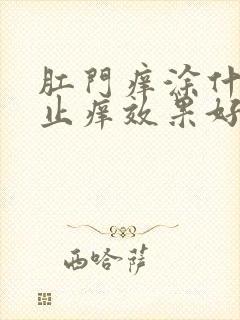 肛門癢涂什
止癢效果好
西哈萨